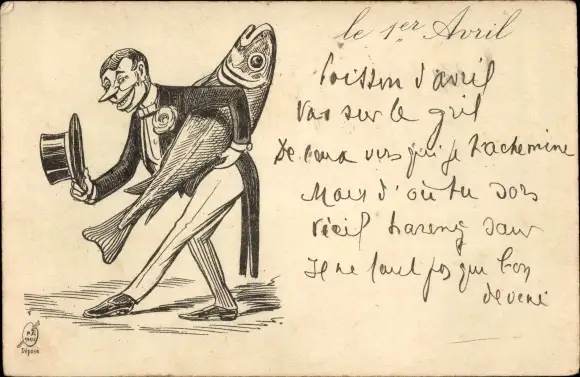 le 1er Avril
Poisson d'avril
Vas sur le gril
De ceux vers qui je t'achemine
Mais d'où tu sors
vieil hareng saur
Il ne faut pas que l'on
devine
Déposé